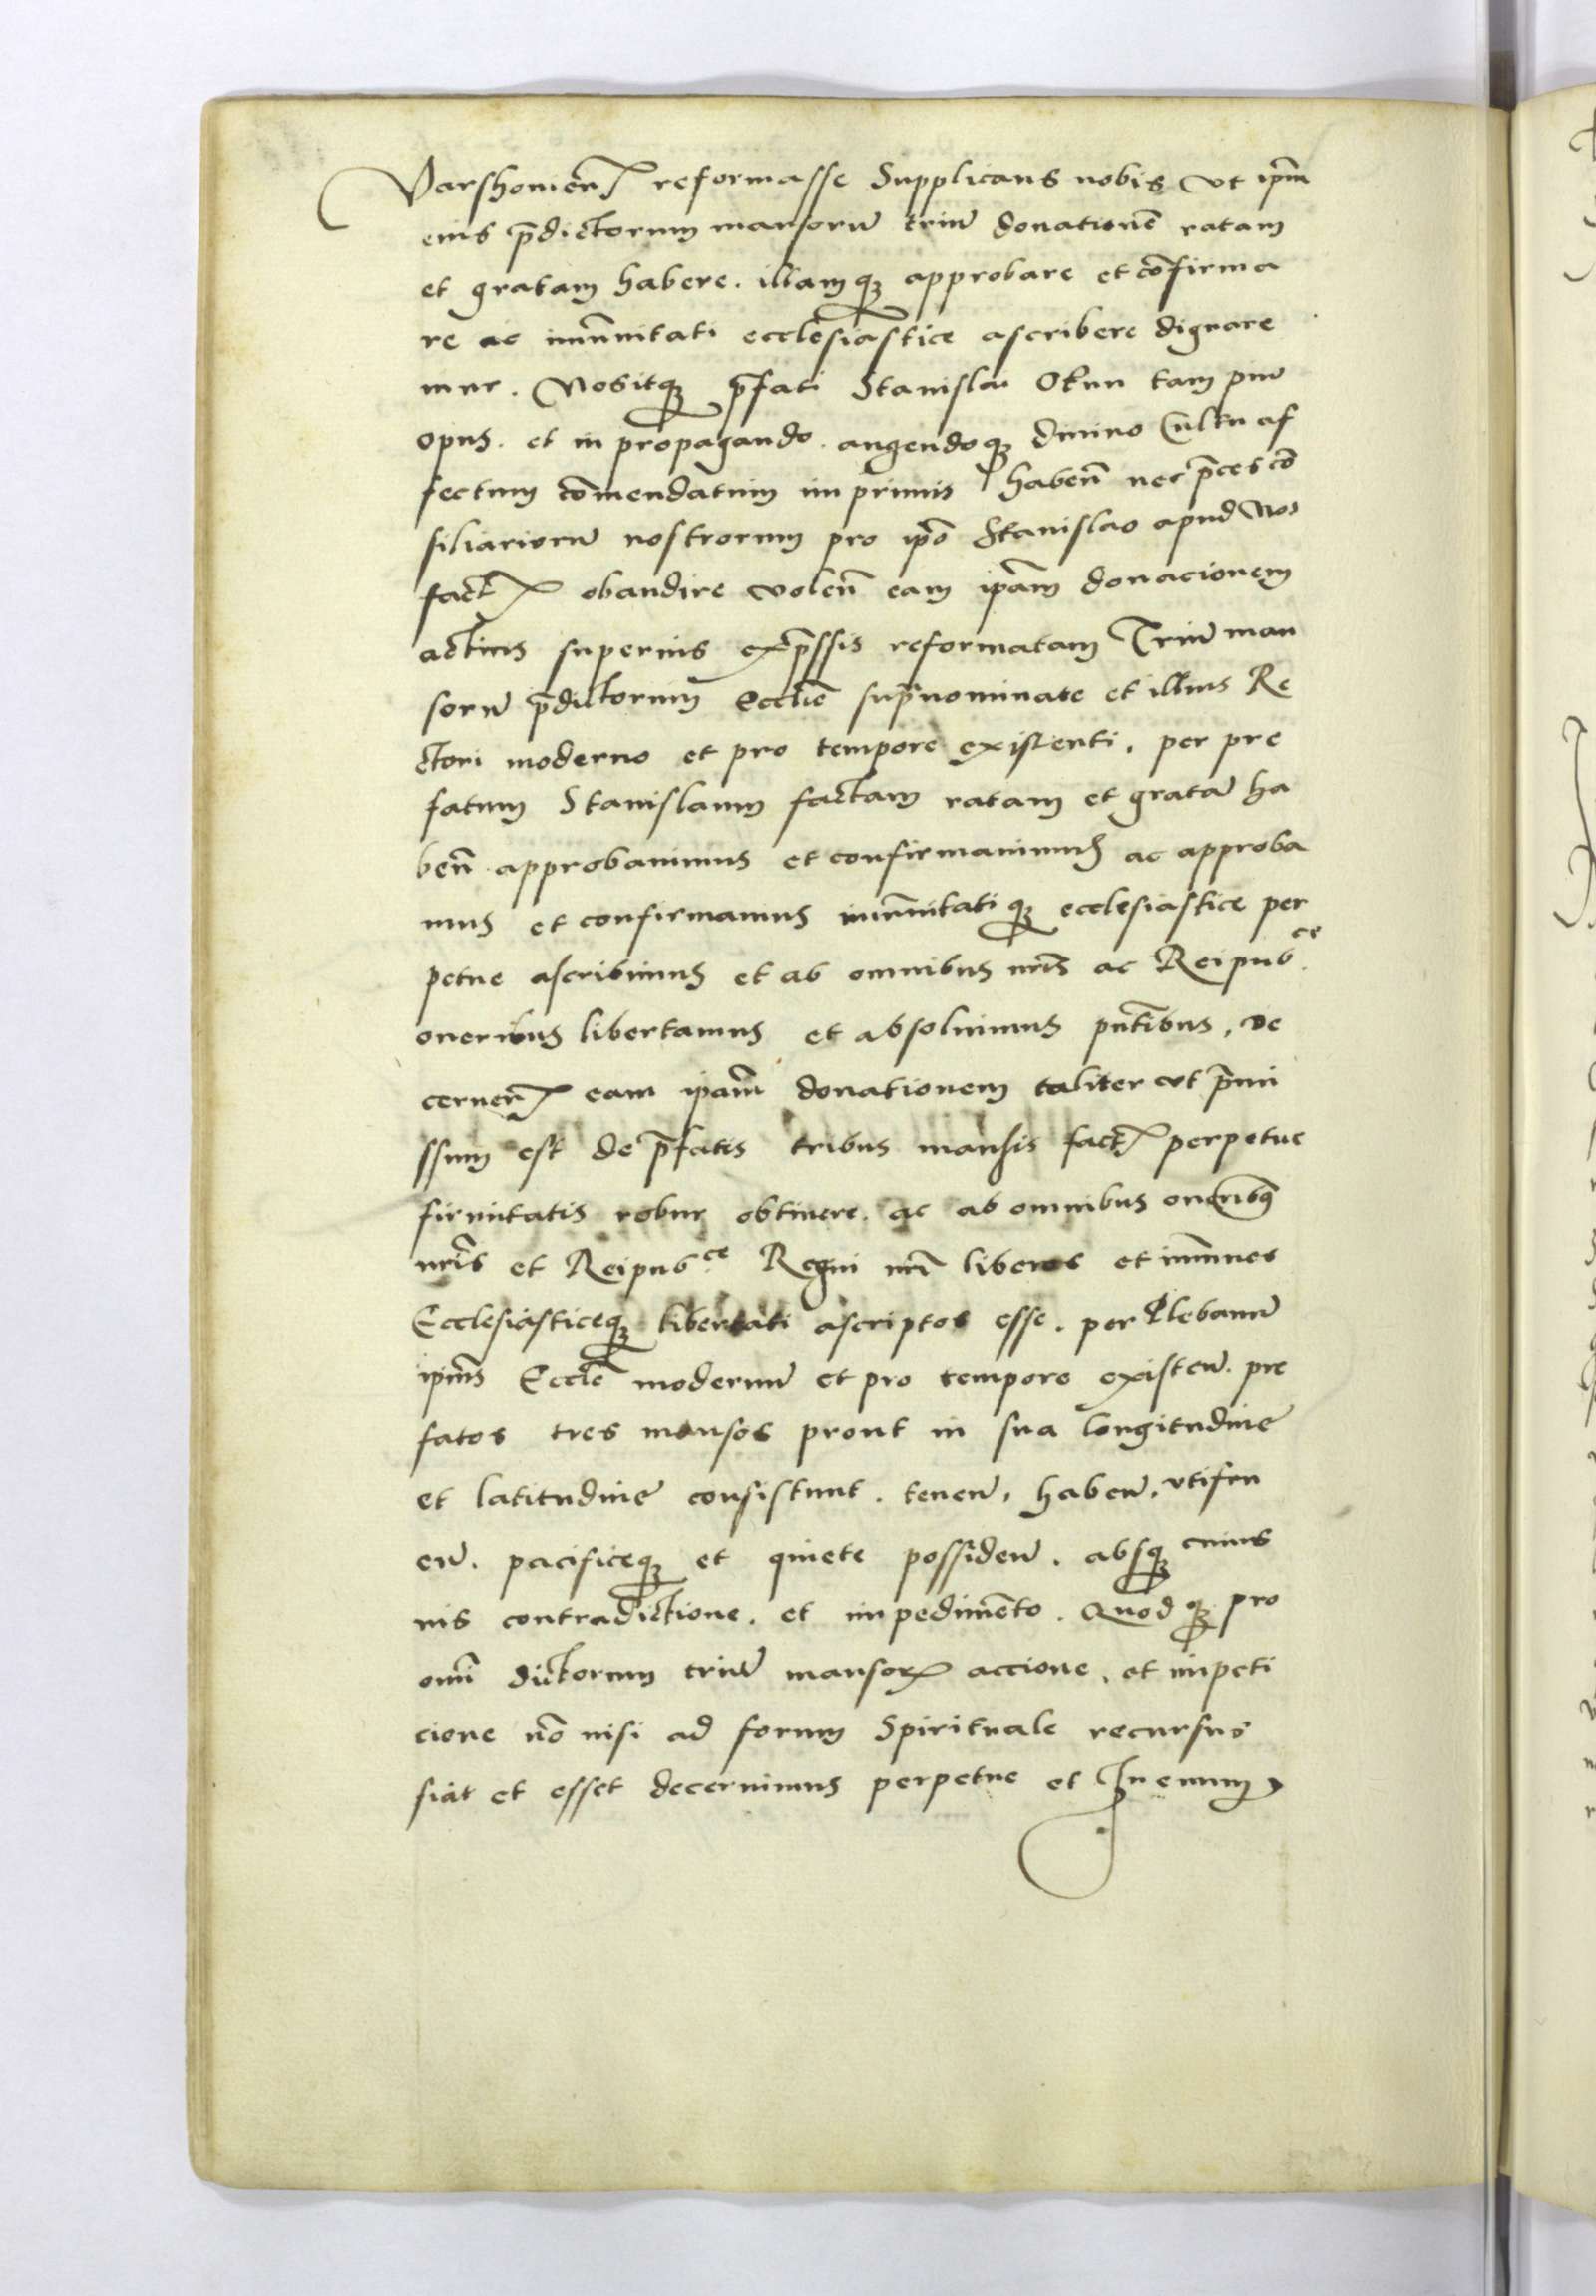 Varshouien̄ reformasse Supplicans nobis vt ip̄m
eius p̄dictorum mansorū triū donationē ratam
et gratam habere. illamqꝫ approbare et cōfirma
re ac imūnitati ecclesiastice ascribere dignare
mur. Nos itaqꝫ p̄fati Stanislai Okun tam piū
opus. et in propagando. augendoqꝫ Diuino Cultu af
fectum cōmendatum imprimis haben̄ nec p̄ces cō
siliariorū nostrorum pro ip̄o Stanislao apud Nos
fact obaudire volen̄ eam ip̄am donacionem
actinis superius exp̄ssis reformatam Triū man
sorū p̄dictorum Eccl̄ie sup̄nominate et illius Re
ctori moderno et pro tempore existenti. per pre
fatum Stanislaum factam ratam et gratā ha
ben̄ approbauimus et confirmauimus ac approba
mus et confirmamus imūnitatiqꝫ ecclesiastice per
petue ascribimus et ab omnibus nr̄is ac Reipub.ce
oneribus libertamus et absoluimus pn̄tibus, De
cernen̄ eam ip̄am donationem taliter vt p̄mi
ssum est de p̄fatis tribus mansis fact perpetue
firmitatis robur obtinere. ac ab omnibus oneribꝫ
nr̄is et Reipub.ce Regni nr̄i liberos et imunes
Ecclesiasticeqꝫ libertati ascriptos esse. per Plebanū
ip̄ius Eccl̄ie modernū et pro tempore existeñ. pre
fatos tres mansos prout in sua longitudine
et latitudine consistunt. teneñ, habeñ. vtifru
eñ. pacificeqꝫ et quiete possideñ. absqꝫ cuius
uis contradictione. et impedimēto. Quodqꝫ pro
omī dictorum triū mansorꝝ accione, et impeti
cione nō nisi ad forum Spirituale recursus
fiat et esset decernimus perpetue et In euum